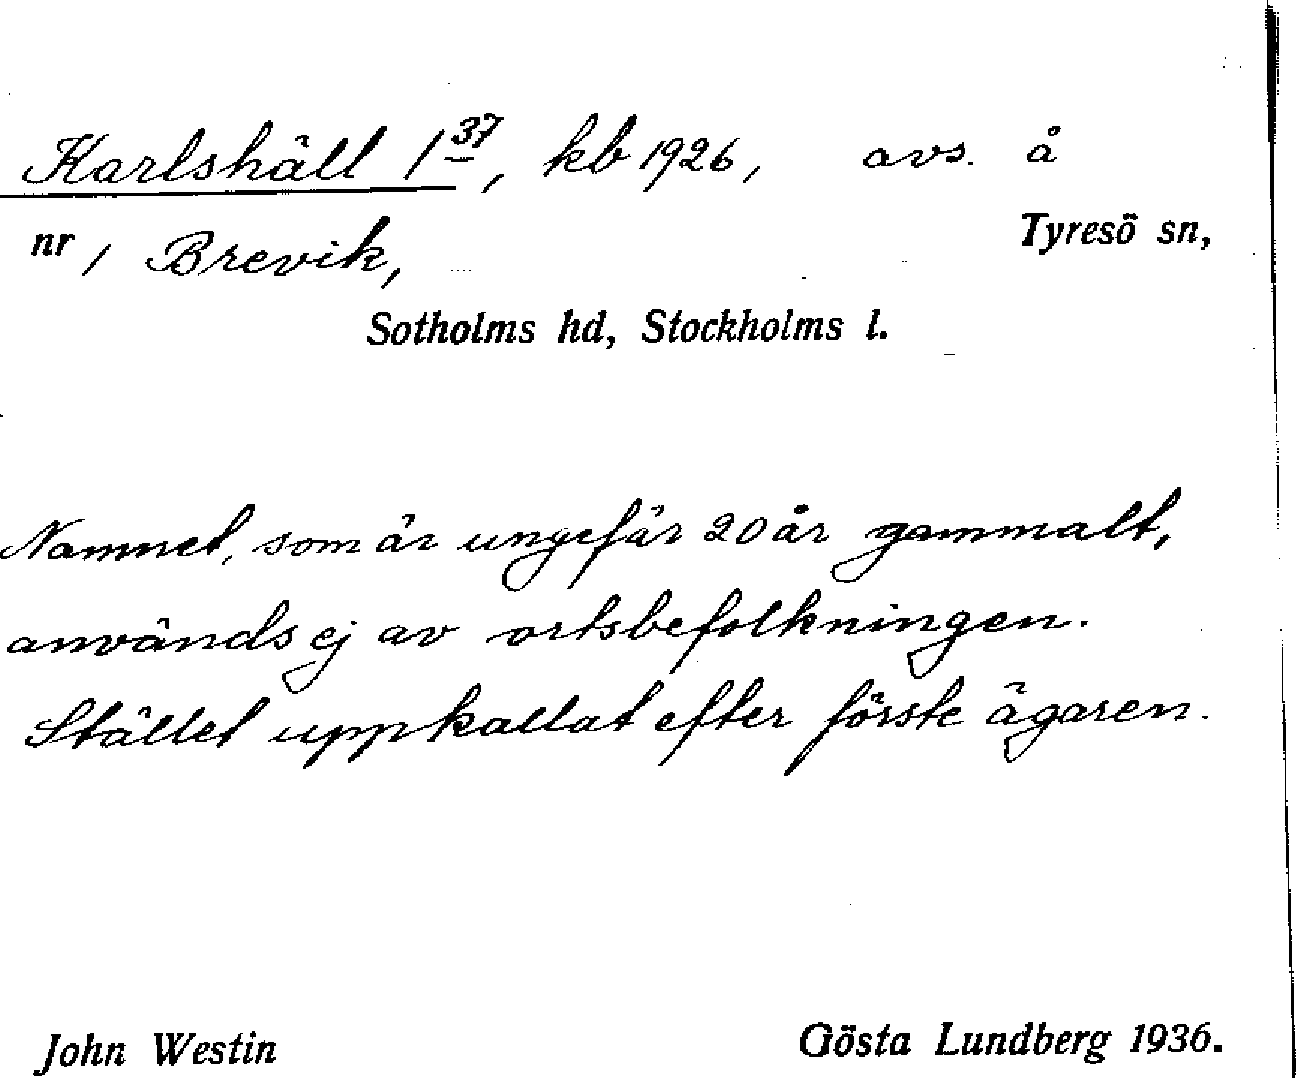 Karlshäll 1 37, kb 1926, avs. å
nr 1 Brevik, Tyresö sn,
Sotholms hd, Stockholms l.
Namnet, som är ungefär 20 år gammalt,
används ej av ortsbefolkningen.
Stället uppkallat efter förste ägaren.
John Westin Gösta Lundberg 1936.